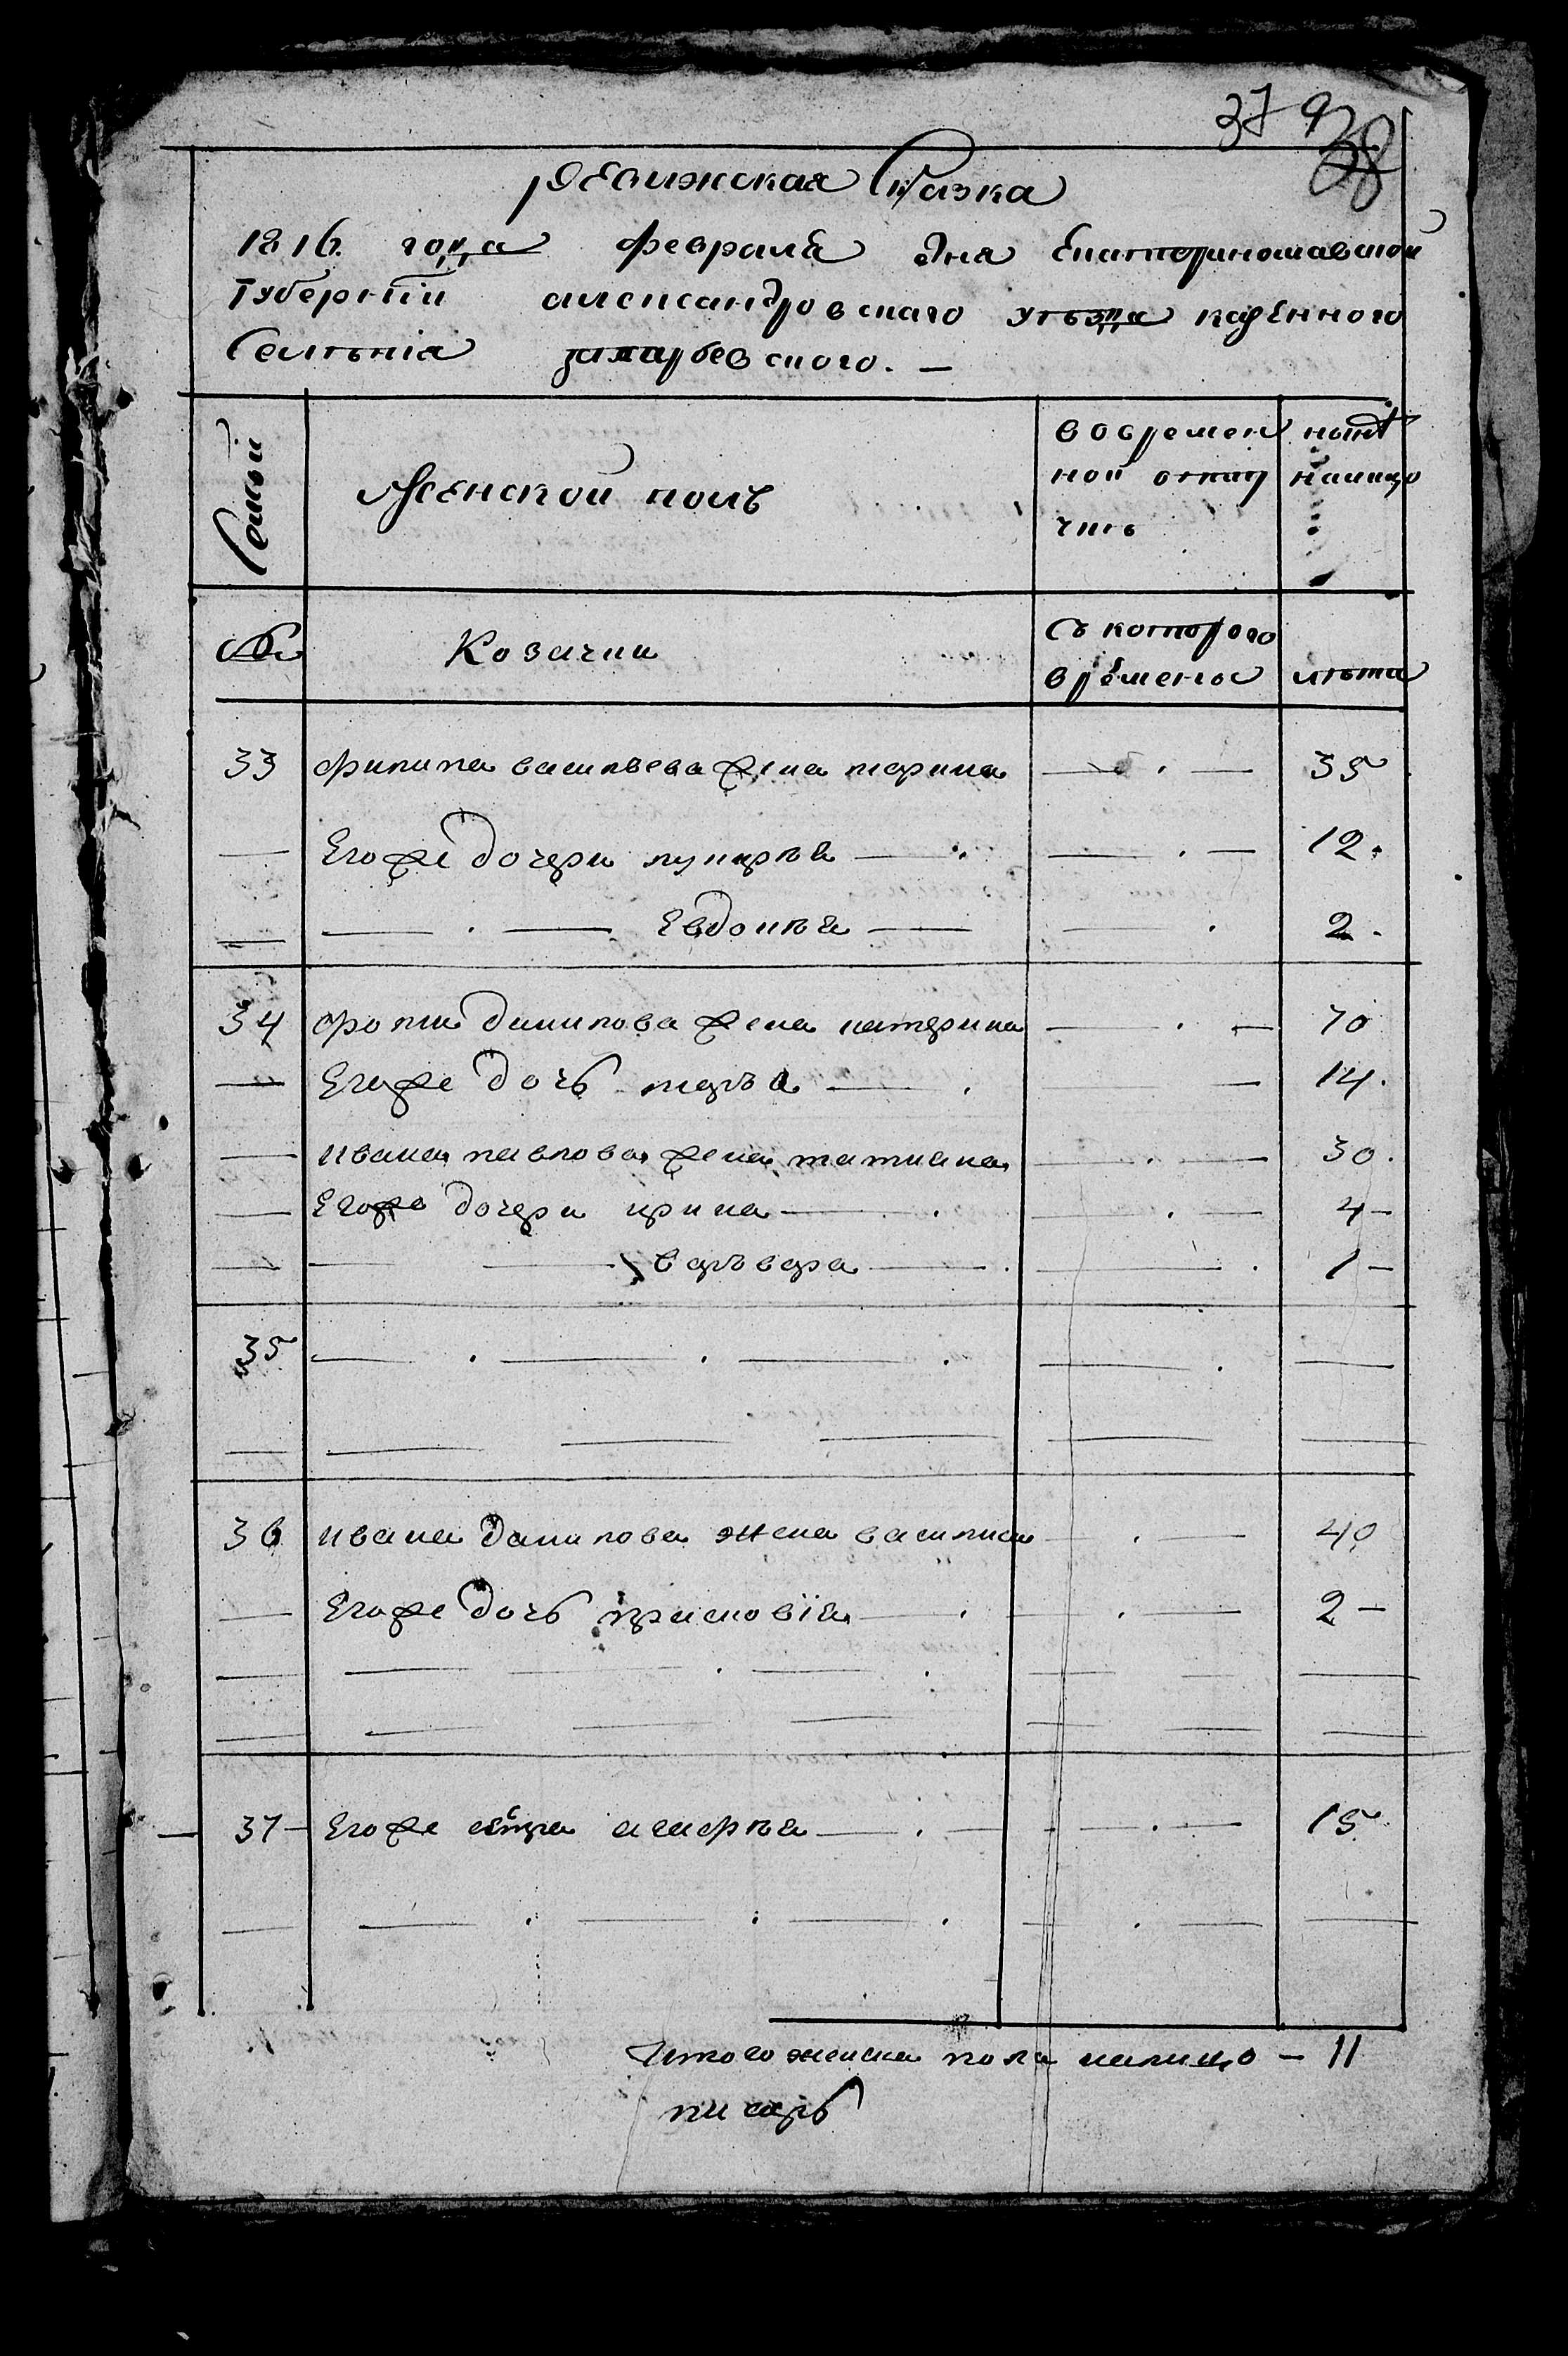 37 9 38
ревижская Сказка
1816. года февраля дня Екатеринославской
Губернїи александровскаго уезда казенного
Селенія захарьевского. —
Семьи
Женской полъ
вовремен
ной отлуч
чкѣ
нынѣ
налицо
№
Козачки
Съ которого
времены
лѣта
33 филипа васильева жена марина — 35
Егоже дочери лукиръя — 12.
— Евдокъя — 2.
34 фомы данилова жена катерина — 70
Егоже дочь маръя — 14.
ивана павлова жена татиана — 30.
Егоже дочери ирина — 4 —
— варъвара — 1 —
35 —
36 ивана данилова жена василиса — 40
Егоже дочь присковїя — 2 —
37 — Егоже сестра — 15
Итого женска пола налицо — 11
писарь